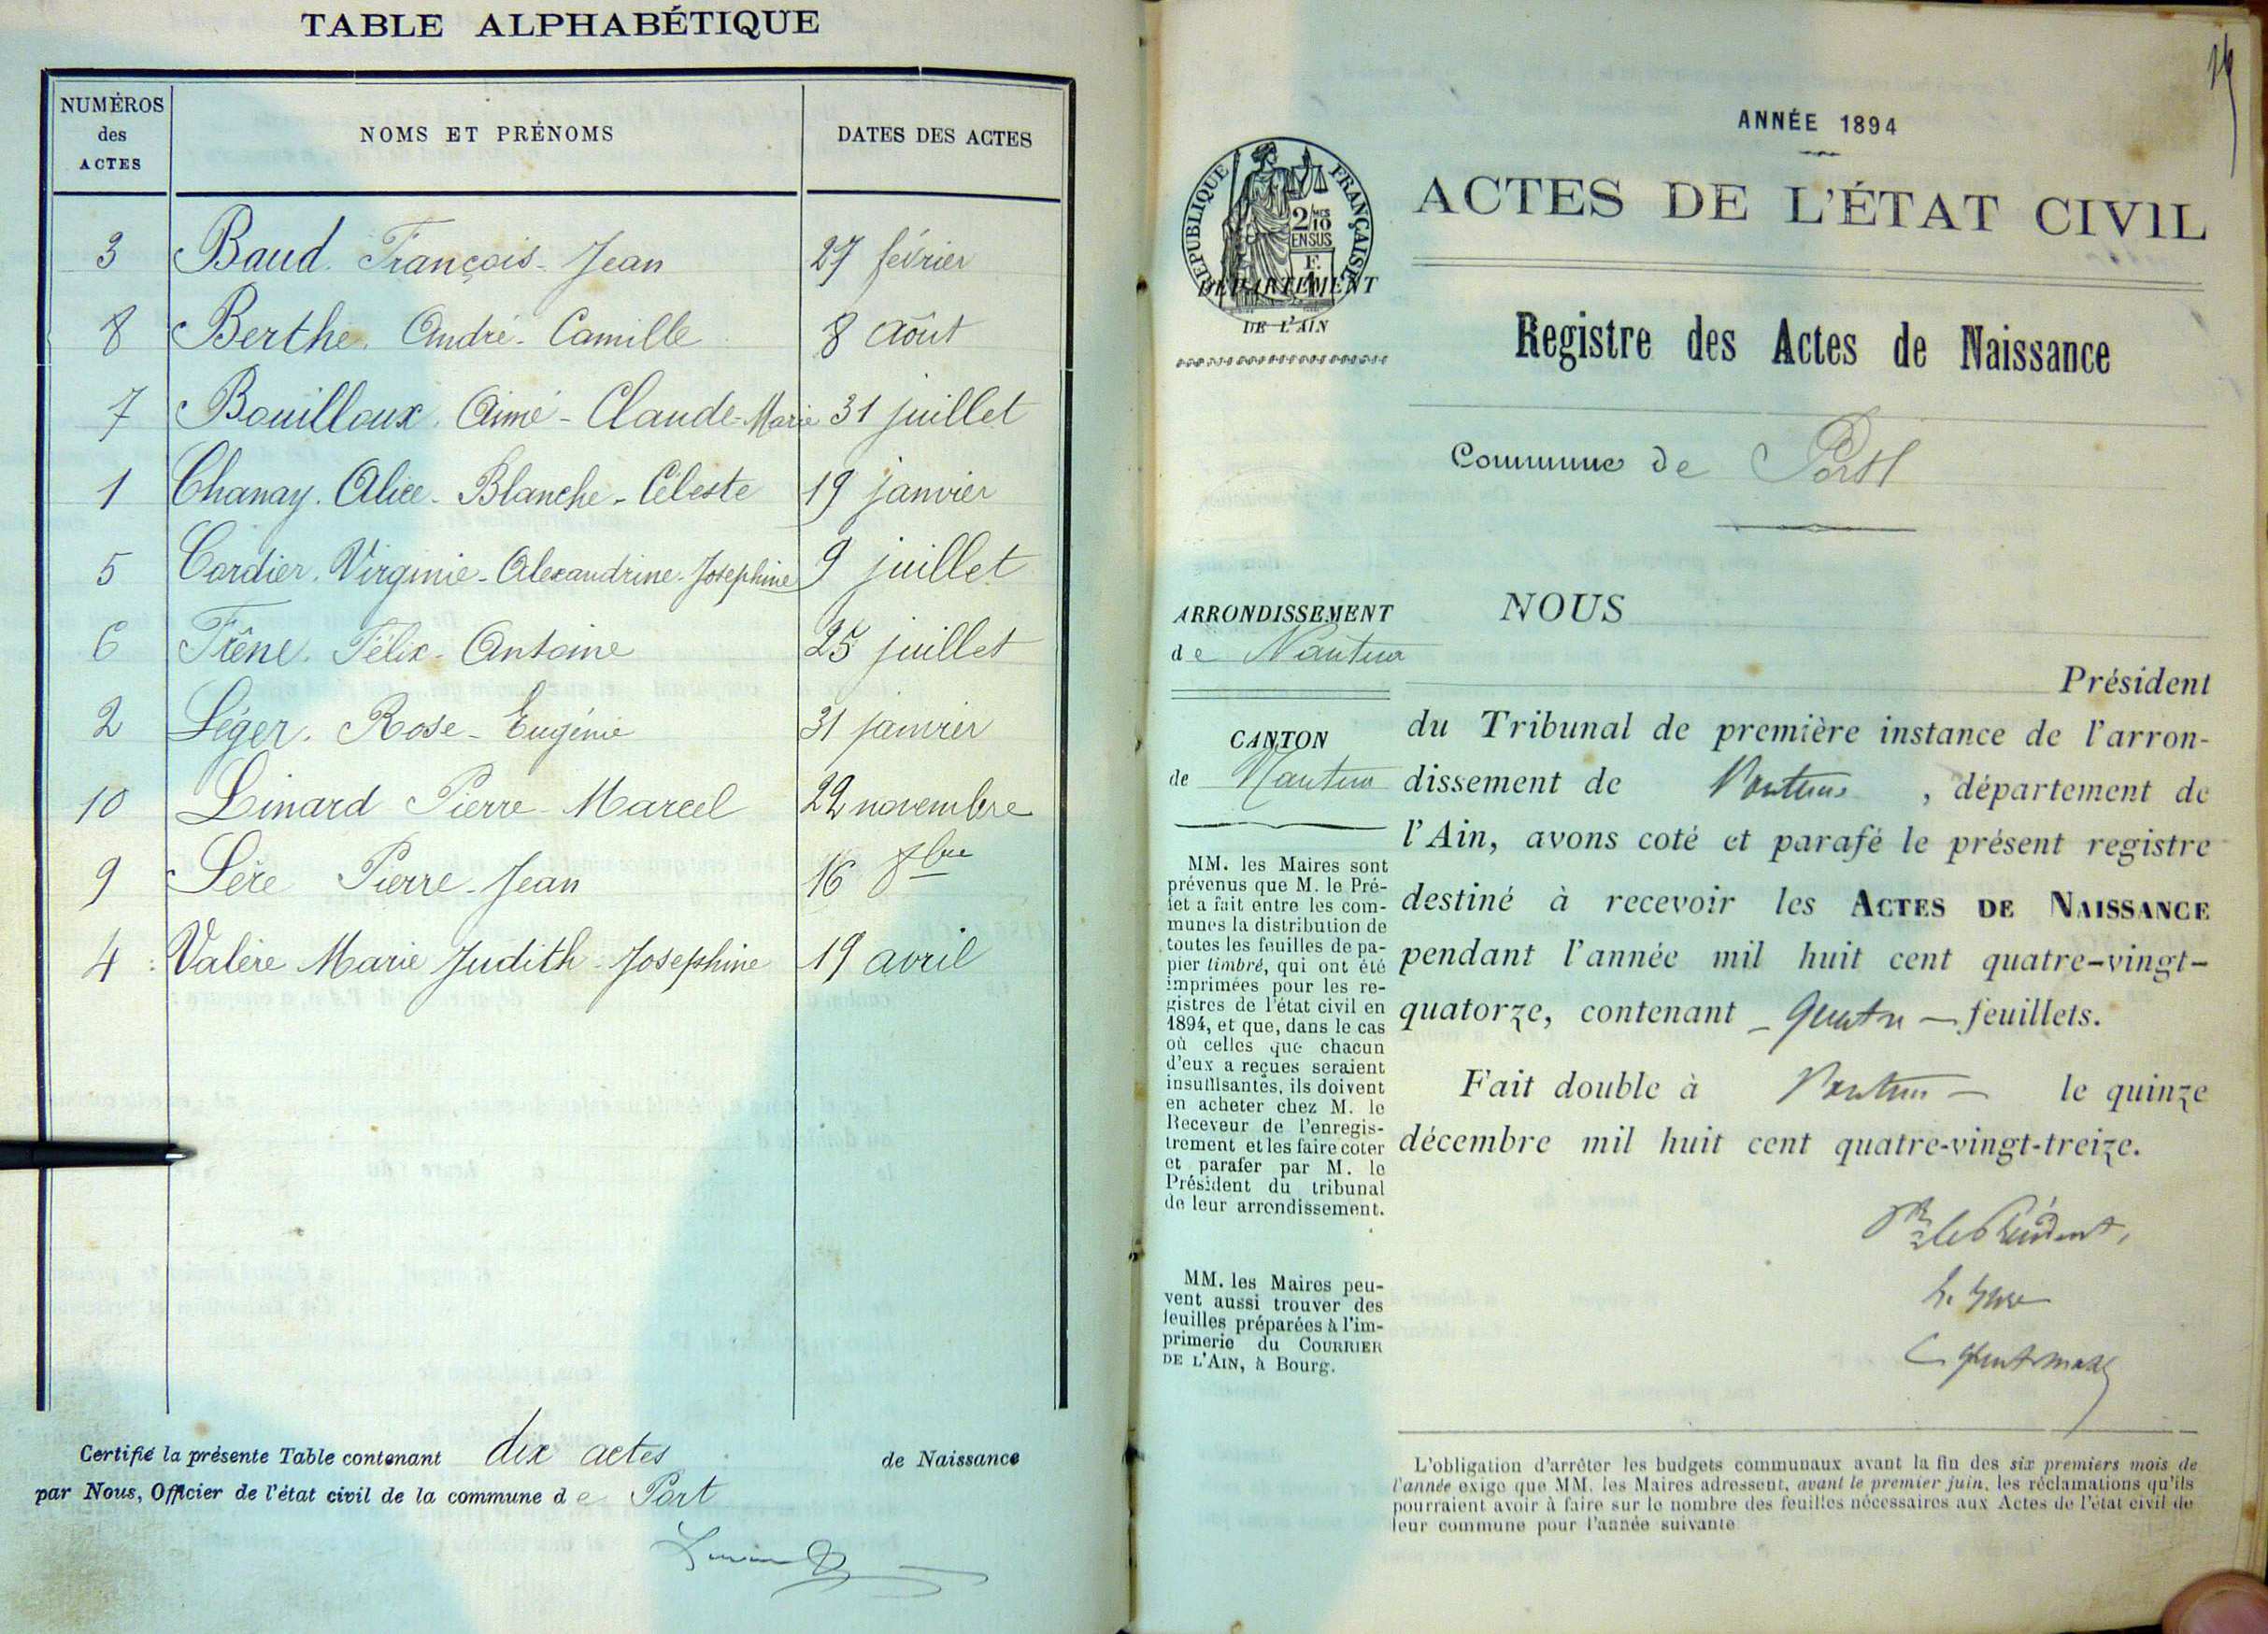 TABLE ALPHABÉTIQUE
NUMÉROS des ACTES
NOMS ET PRÉNOMS
DATES DES ACTES
3 Baud. François-Jean 27 février
8 Berthe. André-Camille 8 août
7 Bouilloux. Aimé-Claude-Marie 31 juillet
1 Chanay. Alice-Blanche-Céleste 19 janvier
5 Cordier. Virginie-Alexandrine-Josephine 9 juillet
6 Frêne. Félix-Antoine 25 juillet
2 Léger. Rose-Eugénie 31 janvier
10 Linard Pierre-Marcel 22 novembre
9 Sère Pierre-Jean 16 8bre
4 Valère Marie Judith-Josephine 19 avril
Certifié la présente Table contenant dix actes de Naissance
par Nous, Officier de l'état civil de la commune de Port
ANNÉE 1894
ACTES DE L'ÉTAT CIVIL
RÉPUBLIQUE FRANÇAISE
2/10
EN SUS
DÉPARTEMENT
DE L'AIN
Registre des Actes de Naissance
Commune de Port
ARRONDISSEMENT
de Nantua
CANTON
de Nantua
MM. les Maires sont
prévenus que M. le Pré-
fet a fait entre les com-
munes la distribution de
toutes les feuilles de pa-
pier timbré, qui ont été
imprimées pour les re-
gistres de l'état civil en
1894, et que, dans le cas
où celles que chacun
d'eux a reçues seraient
insuffisantes, ils doivent
en acheter chez M. le
Receveur de l'enregis-
trement et les faire coter
et parafer par M. le
Président du tribunal
de leur arrondissement.
MM. les Maires peu-
vent aussi trouver des
feuilles préparées à l'im-
primerie du COURRIER
DE L'AIN, à Bourg.
NOUS
Président
du Tribunal de première instance de l'arron-
dissement de Nantua, département de
l'Ain, avons coté et parafé le présent registre
destiné à recevoir les ACTES DE NAISSANCE
pendant l'année mil huit cent quatre-vingt-
quatorze, contenant - quatre - feuillets.
Fait double à Nantua - le quinze
décembre mil huit cent quatre-vingt-treize.
Pr le Président,
L'obligation d'arrêter les budgets communaux avant la fin des six premiers mois de
l'année exige que MM. les Maires adressent, avant le premier juin, les réclamations qu'ils
pourraient avoir à faire sur le nombre des feuilles nécessaires aux Actes de l'état civil de
leur commune pour l'année suivante